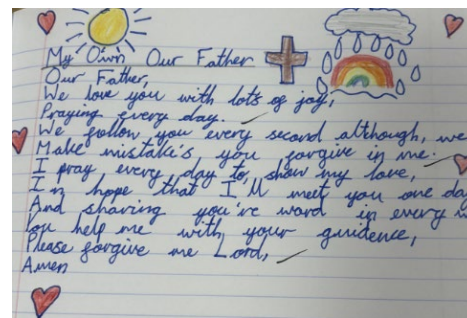 My Own Our Father
Our Father,
We love you with lots of joy,
Praying every day.
We follow you every second although, we
Make mistake's you forgive in me.
I pray every day to, show my love,
In hope that I'll meet you one day
And sharing you're word in every
You help me with your guidence,
Please forgive me Lord,
Amen